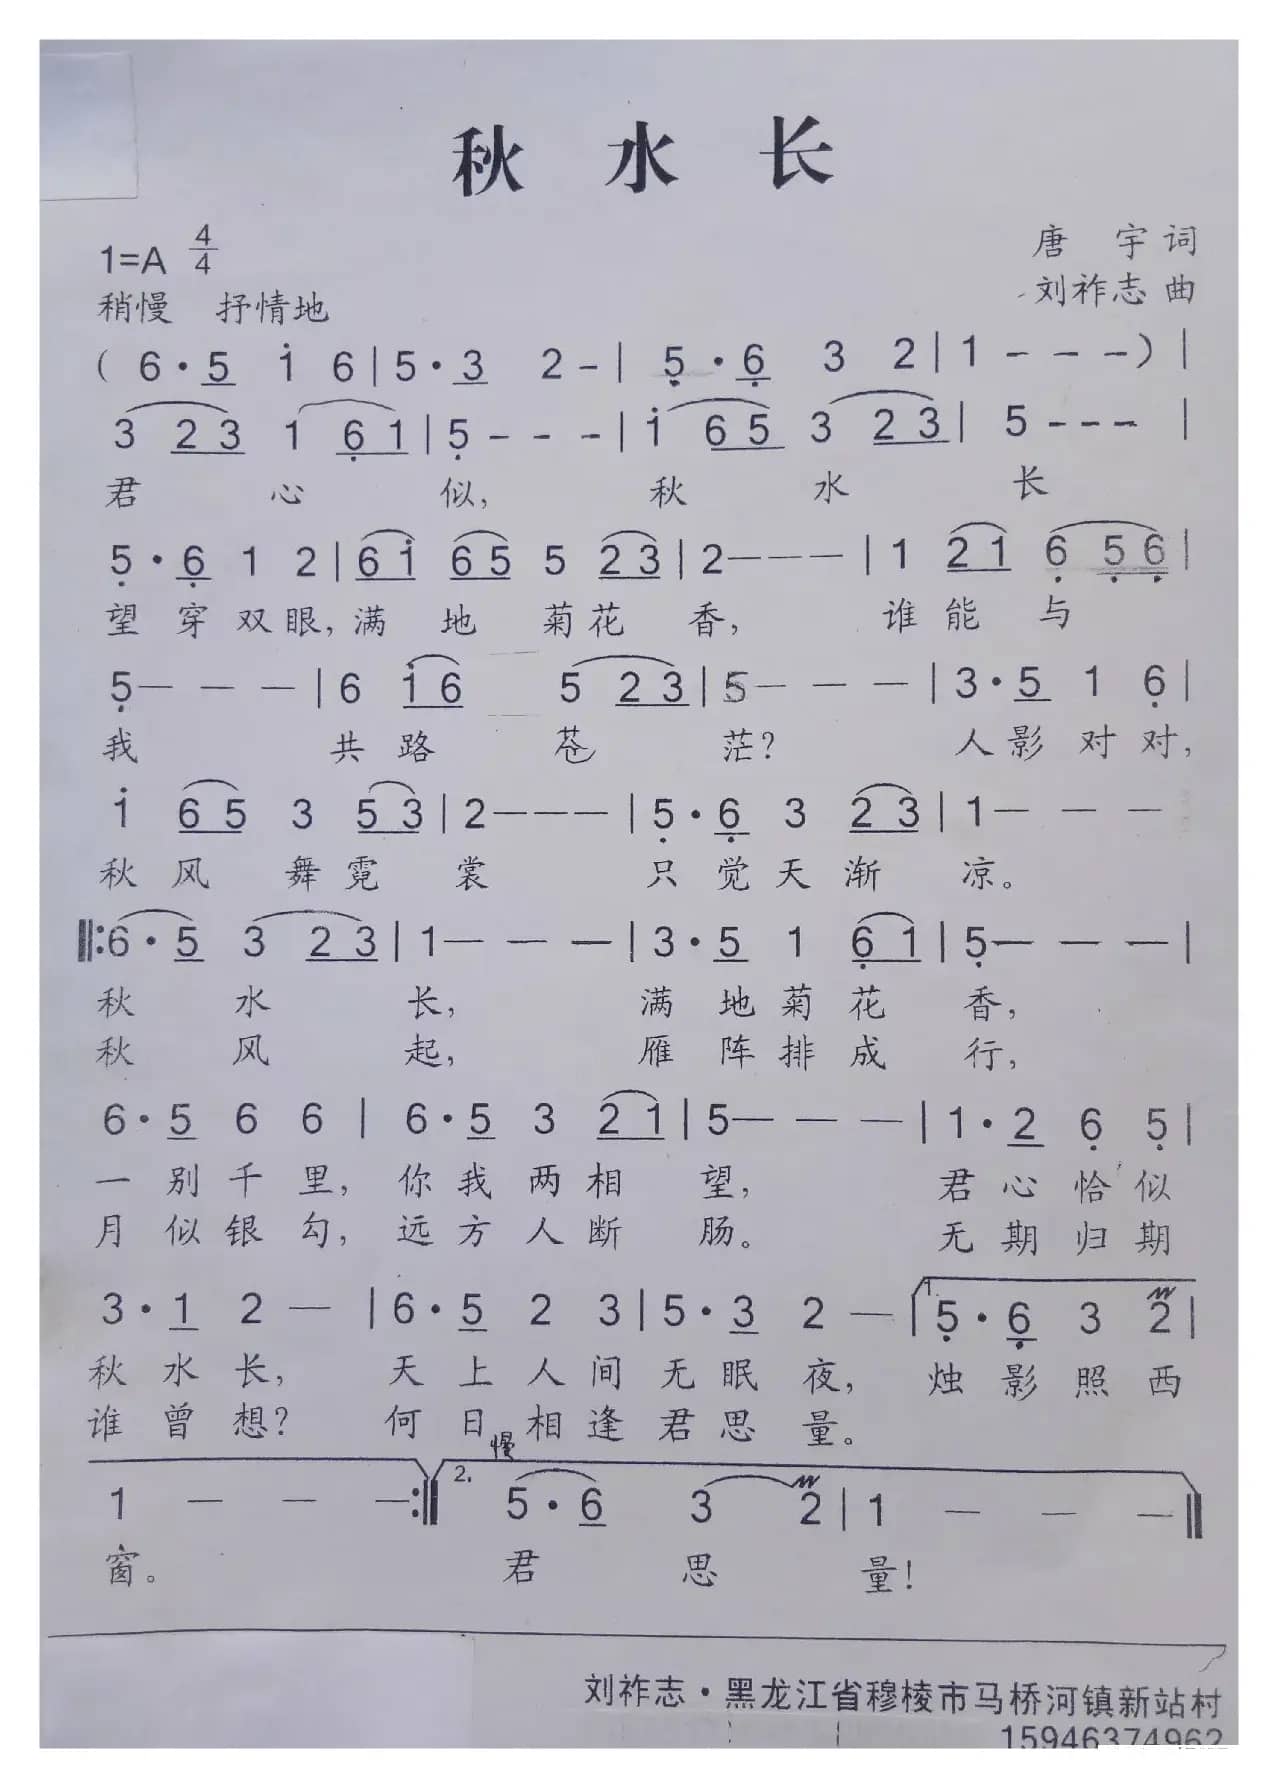 秋 水 长
1=A 4/4
唐 宇 词
稍慢 抒情地
刘祚志 曲
( 6 · 5 i 6 | 5 · 3 2 - | 5 · 6 3 2 | 1 - - - ) |
3 2 3 1 6 1 | 5 - - - | i 6 5 3 2 3 | 5 - - - |
君 心 似, 秋 水 长
5 · 6 1 2 | 6 i 6 5 5 2 3 | 2 - - - | 1 2 1 6 5 6 |
望 穿 双 眼, 满 地 菊 花 香, 谁 能 与
5 - - - | 6 i 6 5 2 3 | 5 - - - | 3 · 5 1 6 |
我 共 路 苍 茫? 人 影 对 对,
i 6 5 3 5 3 | 2 - - - | 5 · 6 3 2 3 | 1 - - -
秋 风 舞 霓 裳 只 觉 天 渐 凉。
‖: 6 · 5 3 2 3 | 1 - - - | 3 · 5 1 6 1 | 5 - - - |
秋 水 长, 满 地 菊 花 香,
秋 风 起, 雁 阵 排 成 行,
6 · 5 6 6 | 6 · 5 3 2 1 | 5 - - - | 1 · 2 6 5 |
一 别 千 里, 你 我 两 相 望, 君 心 恰 似
月 似 银 勾, 远 方 人 断 肠。 无 期 归 期
1.
3 · 1 2 - | 6 · 5 2 3 | 5 · 3 2 - | 5 · 6 3 2 |
秋 水 长, 天 上 人 间 无 眠 夜, 烛 影 照 西
谁 曾 想? 何 日 相 逢 君 思 量。
慢
2.
1 - - - :‖ 5 · 6 3 2 | 1 - - - ‖
窗。 君 思 量!
刘祚志·黑龙江省穆棱市马桥河镇新站村
15946374962